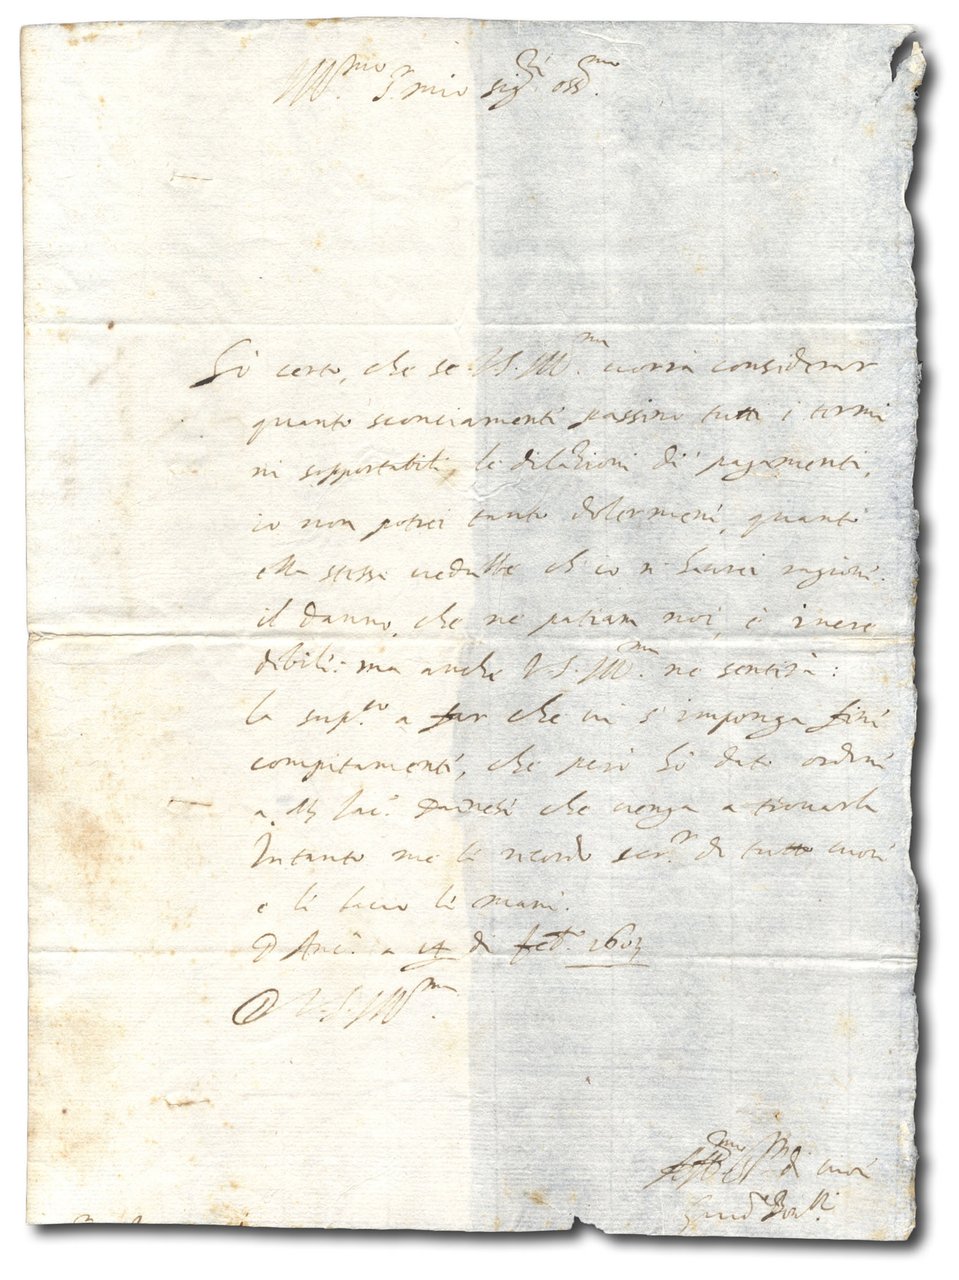 Ill.mo S.r mio sig.r oss.mo
Sò certo, che se V.S. Ill.ma vorrà considerar
quanto sconciamente passino tutti i termi
ni sopportabili, le dilazioni di pagamenti,
io non potrei tanto dolermene, quanto
ella stessa vedrebbe ch'io n'haurei ragione.
il danno, che ne patiam noi, è incre
dibile. ma anche V.S. Ill.ma ne sentirà:
la sup.co a far che vi s'imponga fine
compitamente, che però hò dato ordine
a che venga a trovarla
Intanto me le ricordo ser.r di tutto cuore
e le bacio le mani.
D'Anc.a a di feb.o
D V.S. Ill.ma
Aff.mo di cuore